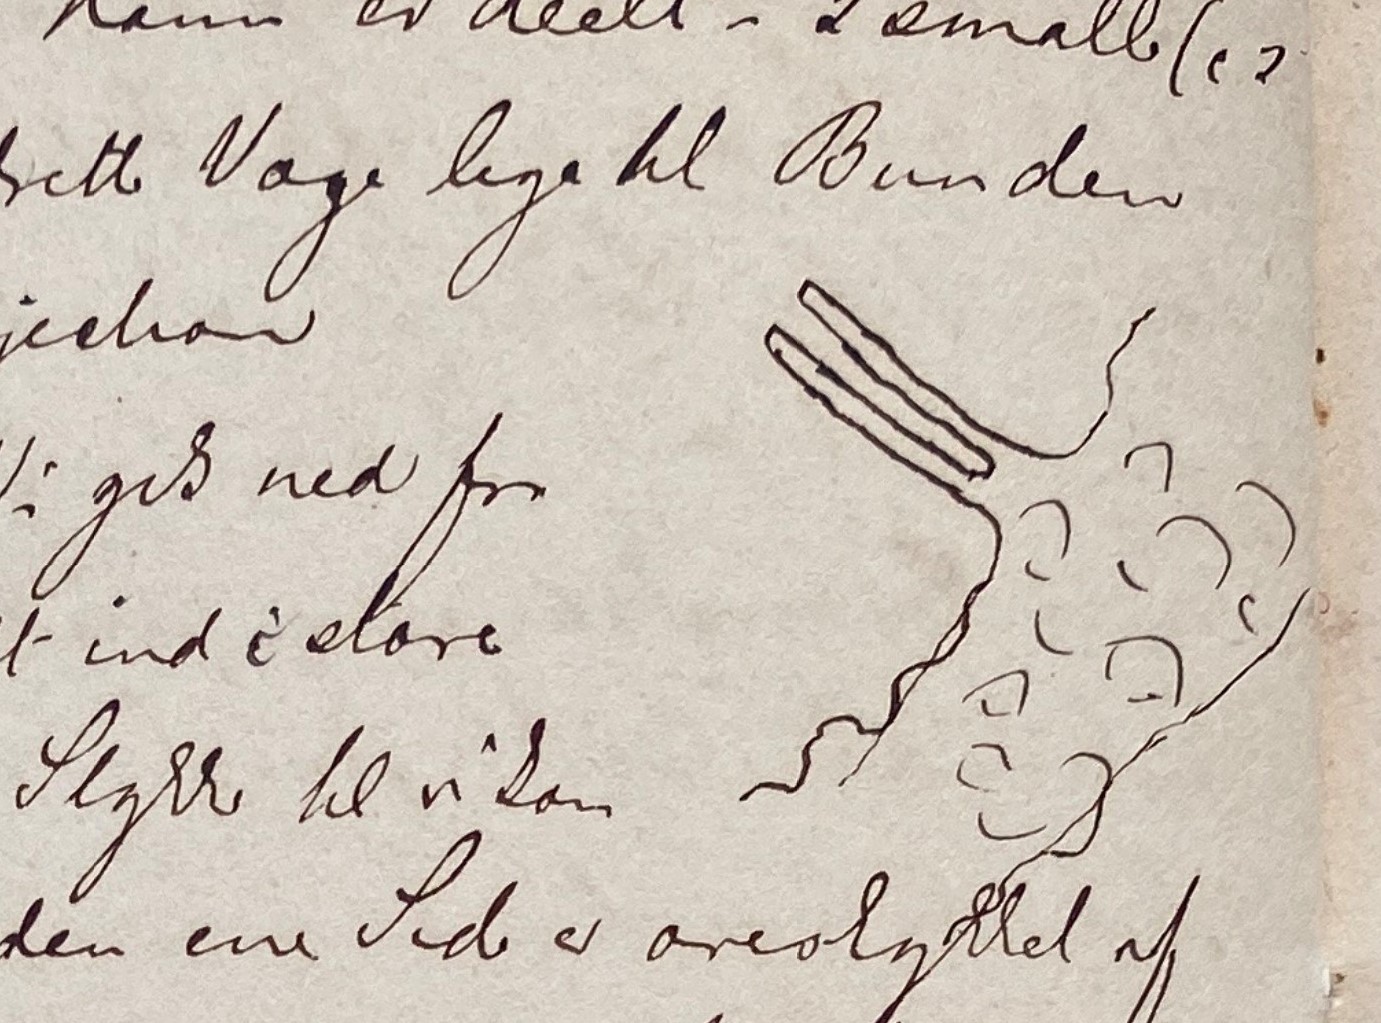 er deelt - 2 smalle (i 2
Væge lige til Bunden
jection
Vi gik ned fra
t ind i store
Stykke til vi kom
den ene Side er overskygget af